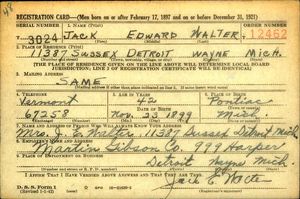 48
REGISTRATION CARD—(Men born on or after February 17, 1897 and on or before December 31, 1921)
SERIAL NUMBER 1. NAME (Print) ORDER NUMBER
3024 JACK EDWARD WALTER 12462
2. PLACE OF RESIDENCE (Print)
11387 SUSSEX DETROIT WAYNE MICH.
[THE PLACE OF RESIDENCE GIVEN ON THE LINE ABOVE WILL DETERMINE LOCAL BOARD
JURISDICTION; LINE 2 OF REGISTRATION CERTIFICATE WILL BE IDENTICAL]
3. MAILING ADDRESS
SAME
4. TELEPHONE 5. AGE IN YEARS 6. PLACE OF BIRTH
Vermont 42 Pontiac
DATE OF BIRTH
67258 Nov. 23 1899 Mich.
7. NAME AND ADDRESS OF PERSON WHO WILL ALWAYS KNOW YOUR ADDRESS
Mrs. J. E. Walter, 11387 Sussex Detroit Mich
8. EMPLOYER'S NAME AND ADDRESS
Martin Gibson Co. 999 Harper
9. PLACE OF EMPLOYMENT OR BUSINESS
Detroit Wayne Mich.
I AFFIRM THAT I HAVE VERIFIED ABOVE ANSWERS AND THAT THEY ARE TRUE.
D. S. S. Form 1
(Revised 1-1-42) Jack E Walter